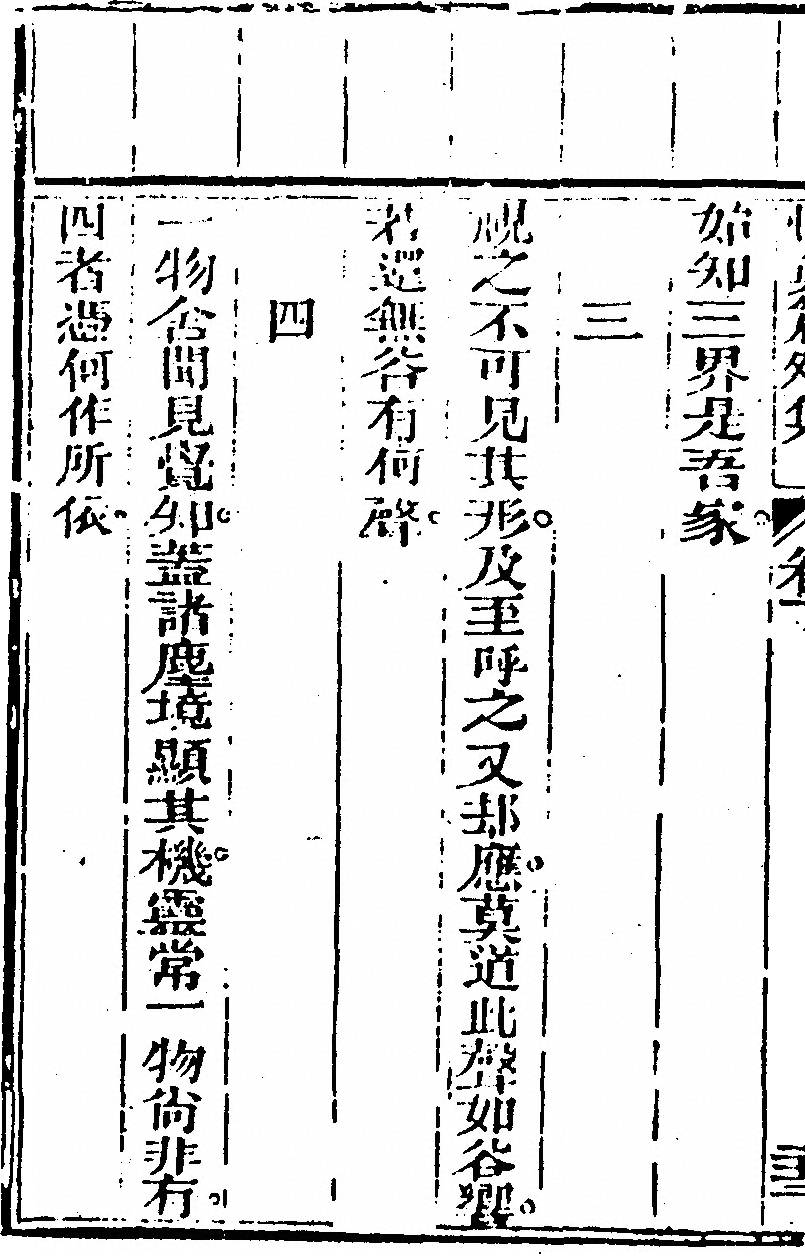 始知三界是吾家。
三
視之不可見其形。及至呼之又却應。莫道此聲如谷響。
若還無谷有何聲。
四
一物含聞見覺知。蓋諸塵境顯其機。靈常一物尚非有。
四者憑何作所依。